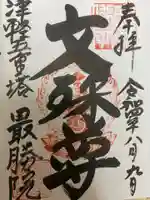 奉拝
令和四年八月九日
文珠尊
津軽五重塔
最勝院